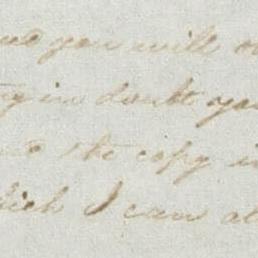 you will
in doubt you
the copy in
which I can